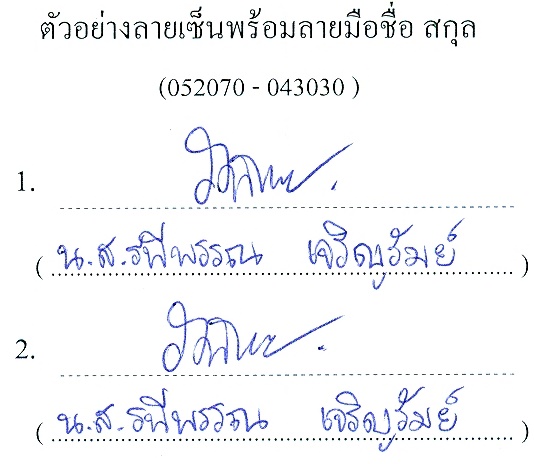 ตัวอย่างลายเซ็นพร้อมลายมือชื่อ สกุล
(052070 - 043030 )
1.
( น.ส.รพีพรรณ เจริญรัมย์ )
2.
( น.ส.รพีพรรณ เจริญรัมย์ )